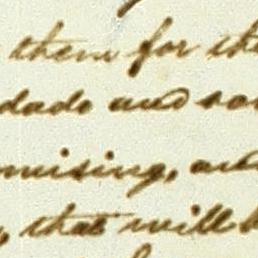 them for the
dado and so
mising, and
, that will b